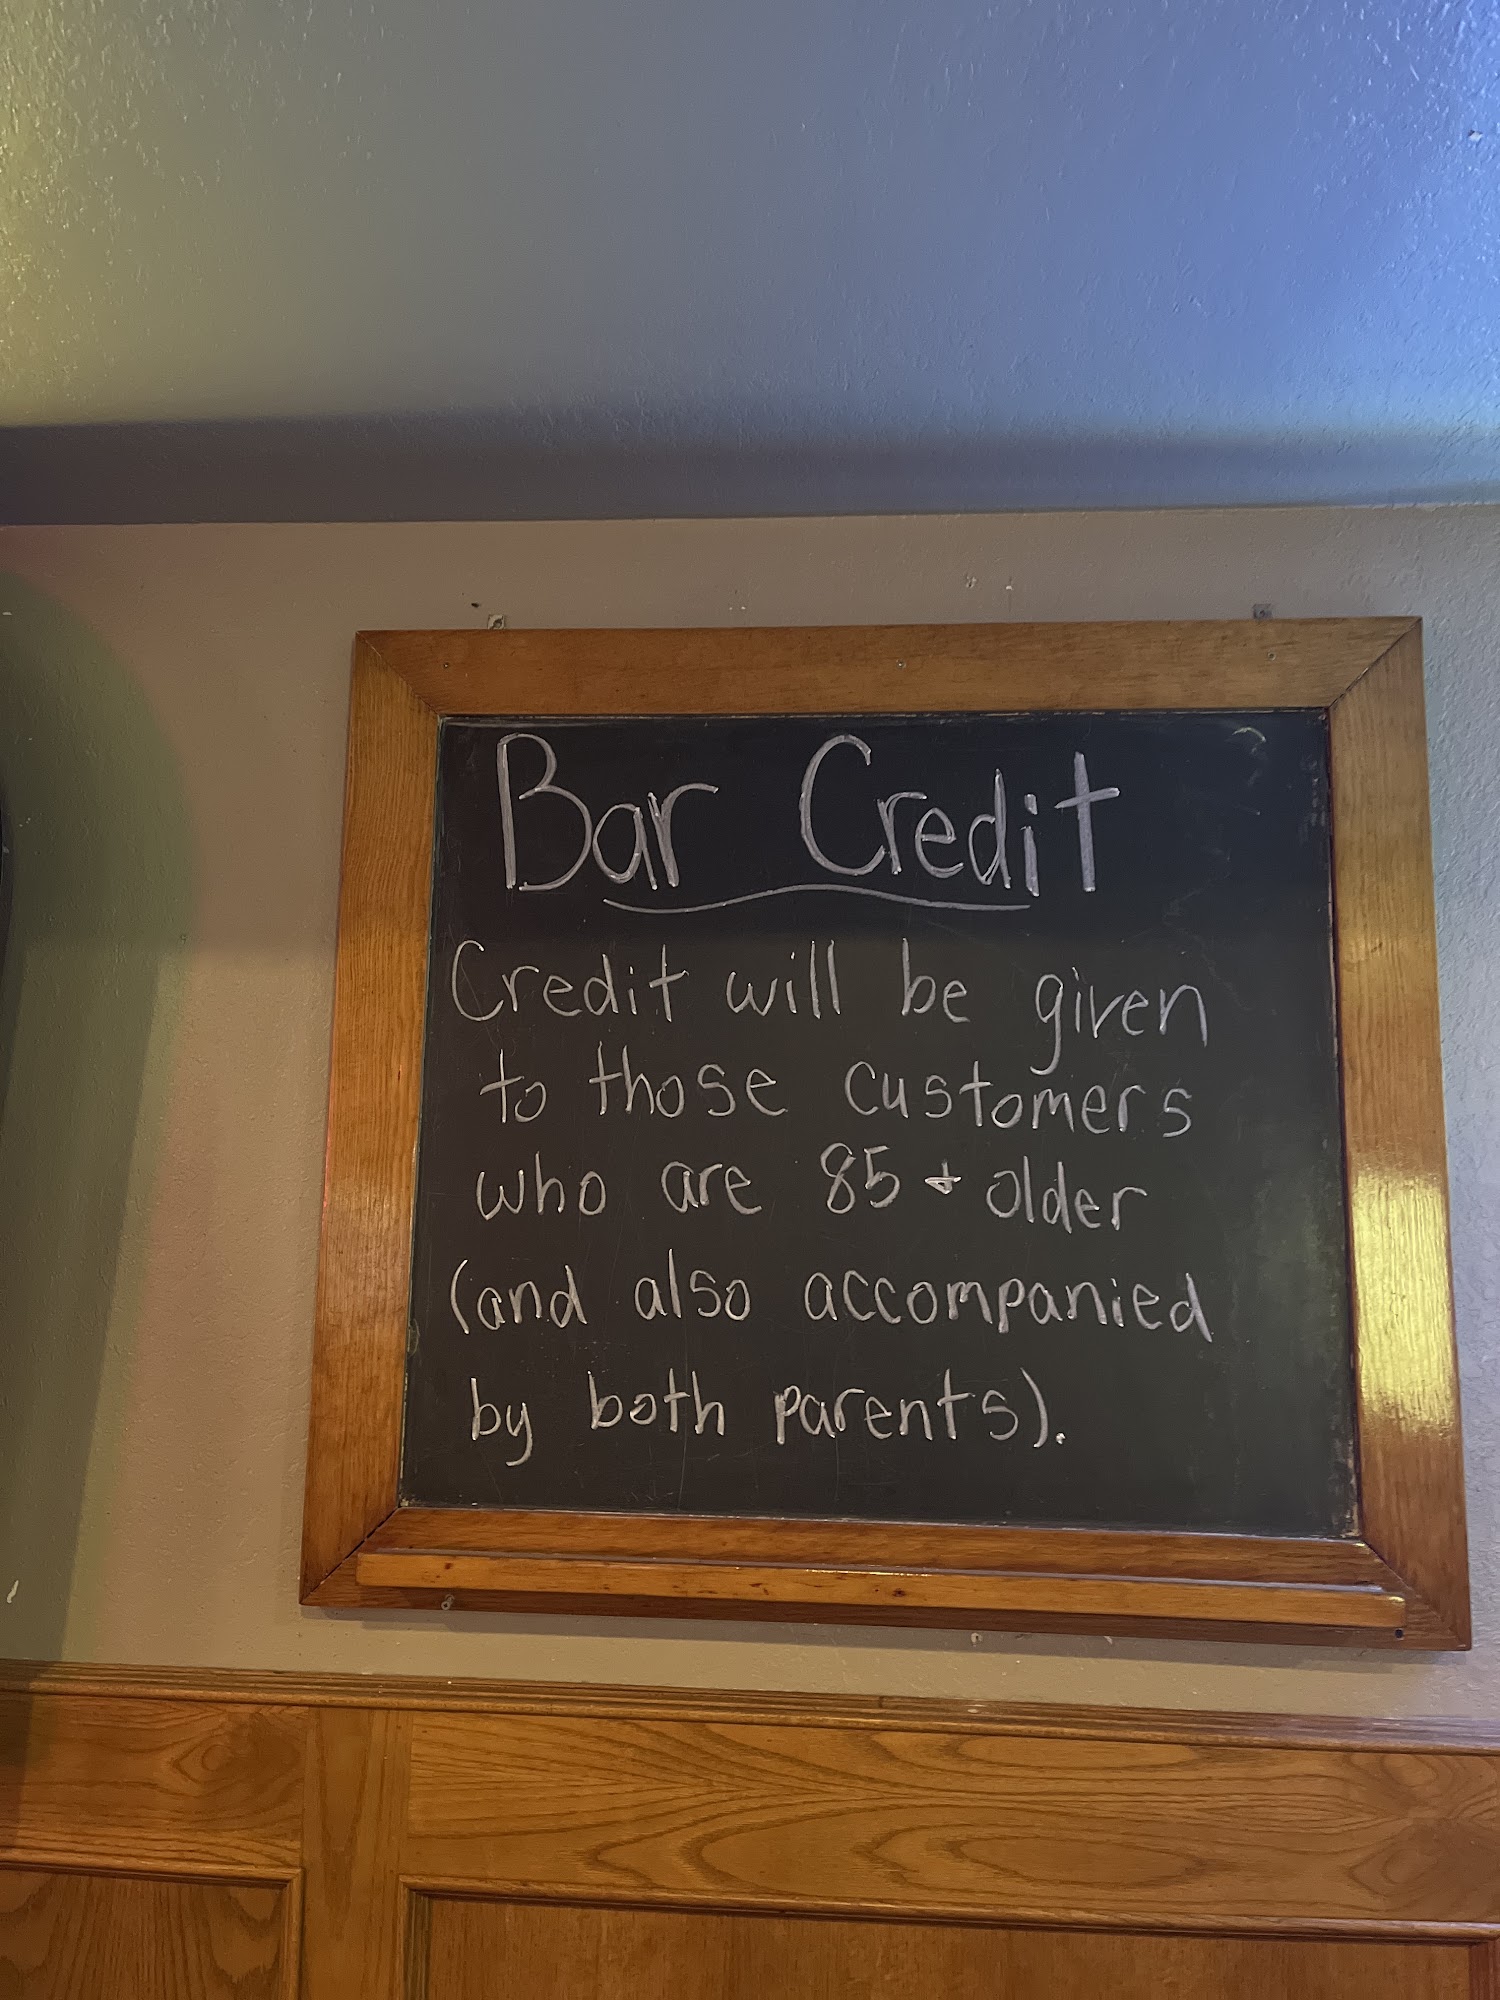 Bar Credit
Credit will be given
to those customers
who are 85 + older
(and also accompanied
by both parents).